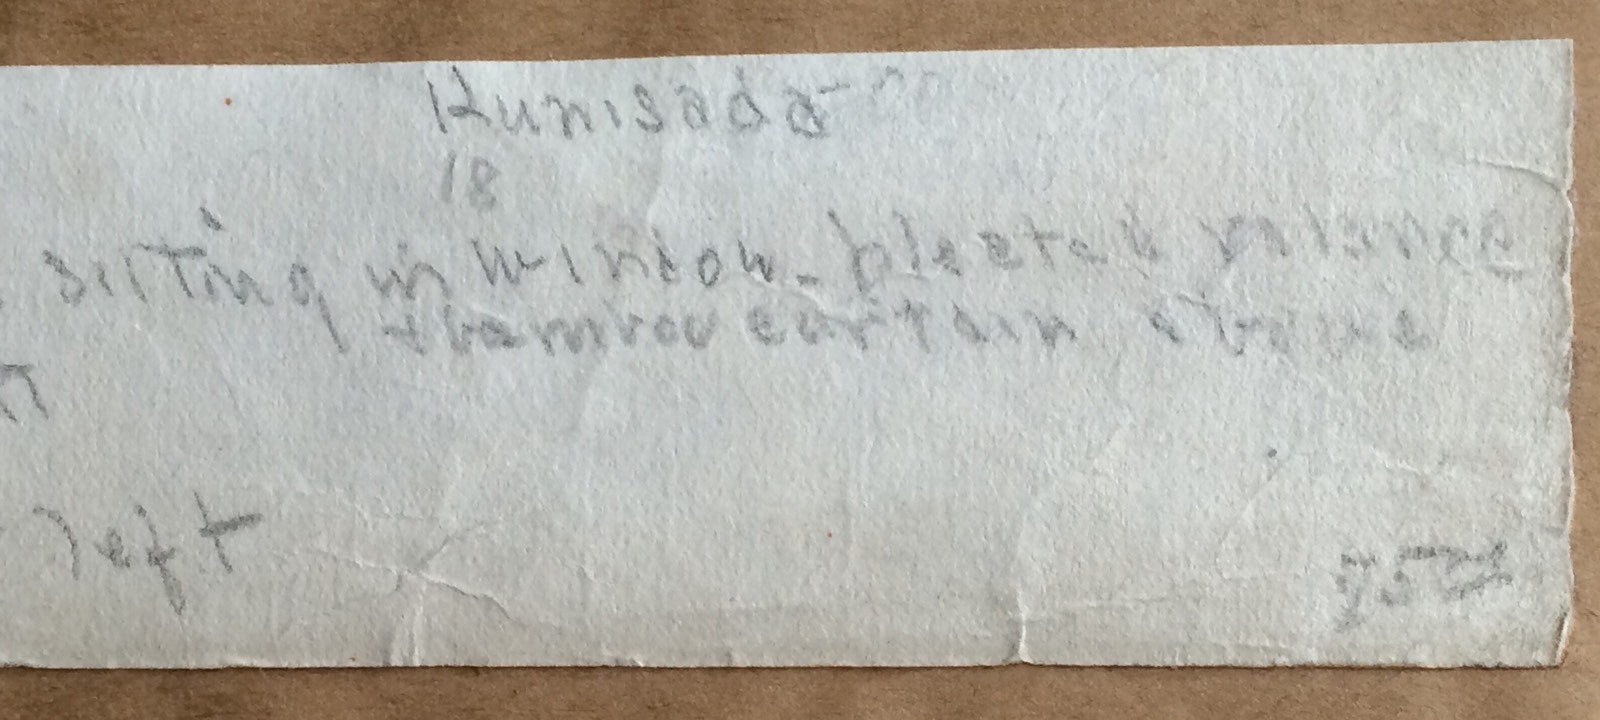 Kunisada
18
sitting in window - pleated valance
+ bamboo curtain above
left